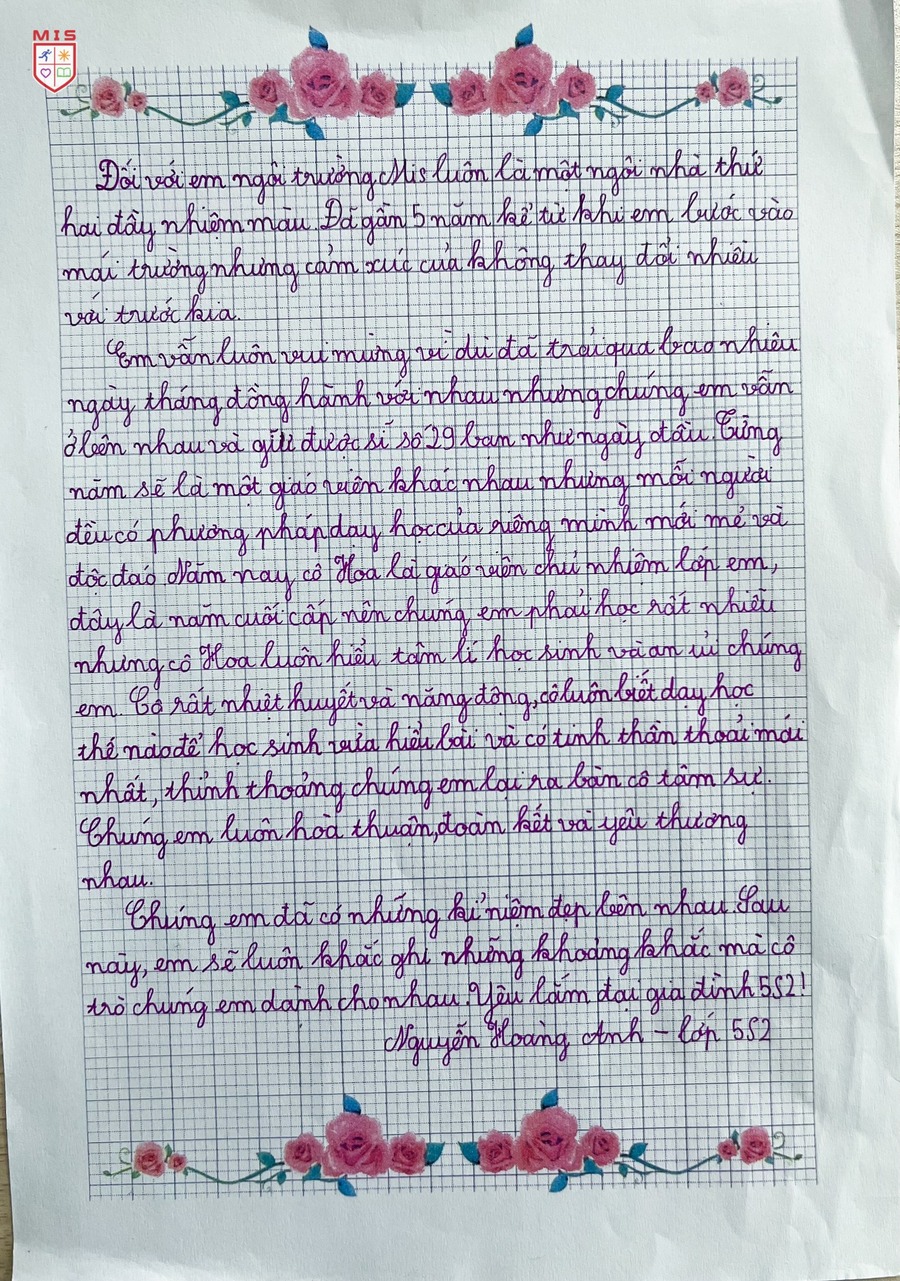 MIS
Đối với em ngôi trường Mis luôn là một ngôi nhà thứ
hai đầy nhiệm màu. Đã gần 5 năm kể từ khi em bước vào
mái trường nhưng cảm xúc của không thay đổi nhiều
với trước kia.
Em vẫn luôn vui mừng vì dù đã trải qua bao nhiêu
ngày tháng đồng hành với nhau nhưng chúng em vẫn
ở bên nhau và giữ được sĩ số 29 bạn như ngày đầu. Từng
năm sẽ là một giáo viên khác nhau nhưng mỗi người
đều có phương pháp dạy học của riêng mình mới mẻ và
độc đáo. Năm nay cô Hoa là giáo viên chủ nhiệm lớp em,
đây là năm cuối cấp nên chúng em phải học rất nhiều
nhưng cô Hoa luôn hiểu tâm lí học sinh và an ủi chúng
em. Cô rất nhiệt huyết và năng động, cô luôn biết dạy học
thế nào để học sinh vừa hiểu bài và có tinh thần thoải mái
nhất, thỉnh thoảng chúng em lại ra bàn cô tâm sự.
Chúng em luôn hoà thuận, đoàn kết và yêu thương
nhau.
Chúng em đã có những kỉ niệm đẹp bên nhau. Sau
này, em sẽ luôn khắc ghi những khoảng khắc mà cô
trò chúng em dành cho nhau. Yêu lắm đại gia đình 5S2!
Nguyễn Hoàng Anh – lớp 5S2